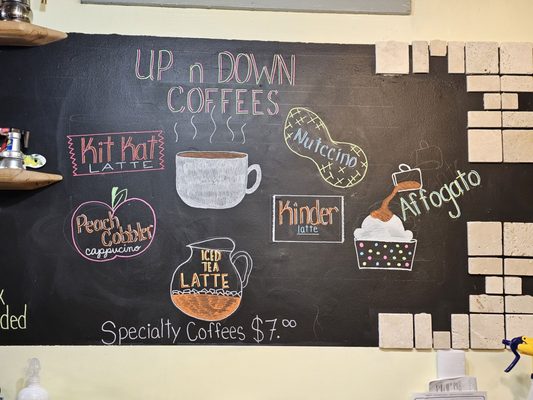 UP n DOWN
COFFEES
Kit Kat
LATTE
Nutccino
Peach
Cobbler
cappyccino
Kinder
latte
Affogato
ICED
TEA
LATTE
Specialty Coffees $7.00